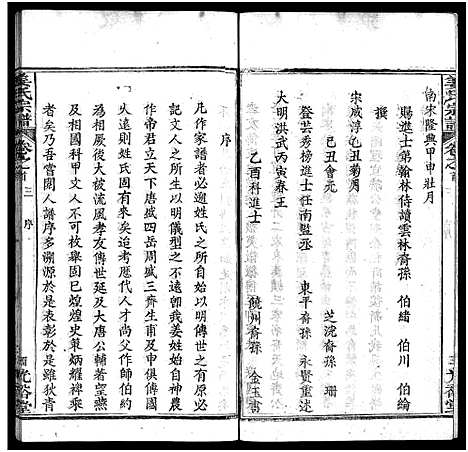 姜氏宗譜
卷之首
三
光裕堂
南宋隆興甲申壯月
賜進士弟翰林侍讀雲林裔孫 伯緒 伯川 伯綸
撰
宋咸淳乙丑菊月
己丑會元 芝浣裔孫 珊
登芸秀榜進士任南監丞 東平裔孫 永賢重述
大明洪武丙寅春王
乙酉科進士 饒州裔孫 金玉書
序
凡作家譜者必遡姓氏之所自始以明傳世之有原必
記文人之所生以明儀型之不遠卽我姜姓始自神農
作帝君立天下唐戚四岳周戚三齊生甫及申俱傳國
久遠則姓氏固有來矣追考歷代人才尚父作師伯約
為相厥後大被流風孝友傳世及大唐公輔著望燕
貽內翰科甲文人不可枚舉固已煌煌史策炳耀裨乘
者矣乃吾嘗閱人譜序多溯源於是表彰於是雖狄青
姜氏宗譜
卷之首
三 序
光裕堂